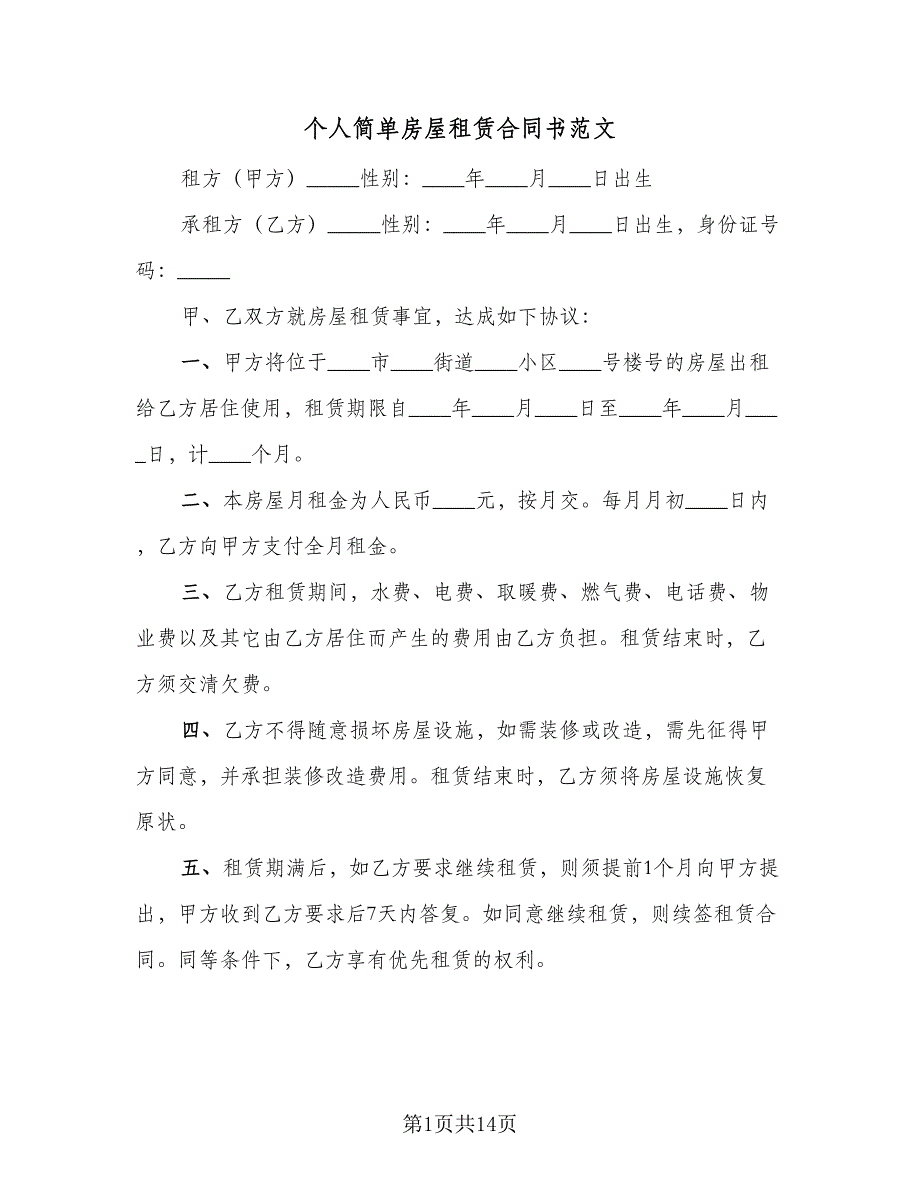 个人简单房屋租赁合同书范文
租方（甲方）_____性别：____年____月____日出生
承租方（乙方）_____性别：____年____月____日出生，身份证号
码：_____
甲、乙双方就房屋租赁事宜，达成如下协议：
一、甲方将位于____市____街道____小区____号楼号的房屋出租
给乙方居住使用，租赁期限自____年____月____日至____年____月___
_日，计____个月。
二、本房屋月租金为人民币____元，按月交。每月月初____日内
，乙方向甲方支付全月租金。
三、乙方租赁期间，水费、电费、取暖费、燃气费、电话费、物
业费以及其它由乙方居住而产生的费用由乙方负担。租赁结束时，乙
方须交清欠费。
四、乙方不得随意损坏房屋设施，如需装修或改造，需先征得甲
方同意，并承担装修改造费用。租赁结束时，乙方须将房屋设施恢复
原状。
五、租赁期满后，如乙方要求继续租赁，则须提前1个月向甲方提
出，甲方收到乙方要求后7天内答复。如同意继续租赁，则续签租赁合
同。同等条件下，乙方享有优先租赁的权利。
第1页共14页